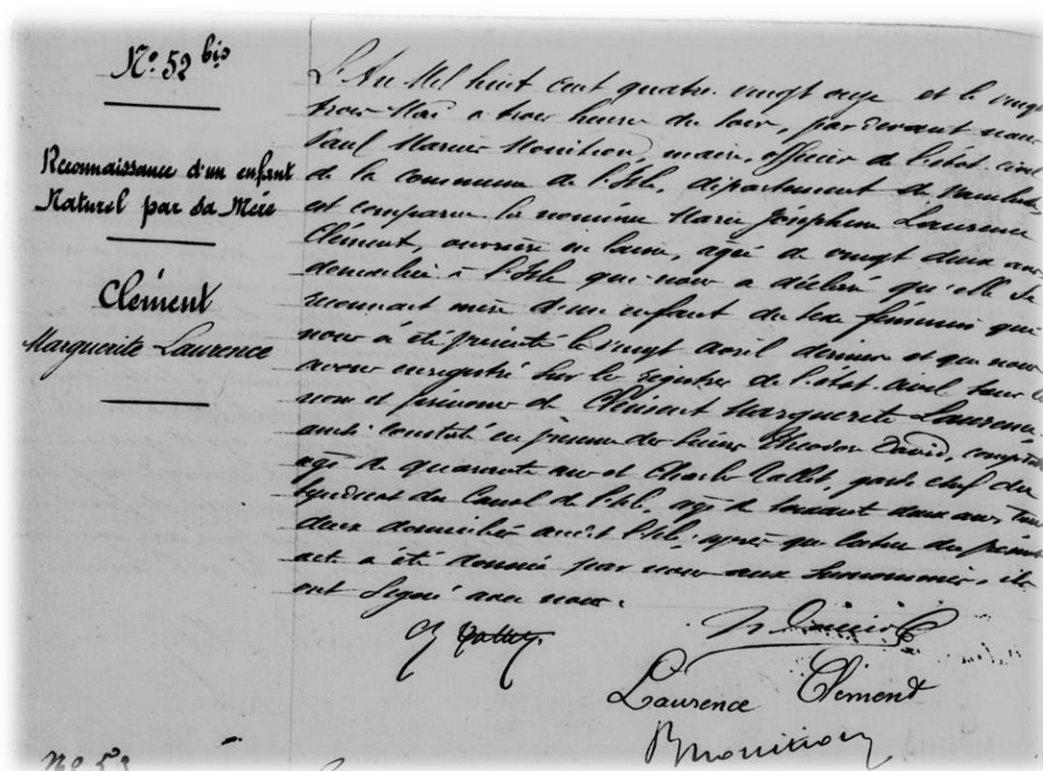 N° 52 bis
Reconnaissance d'un enfant
Naturel par sa Mère
Clément
Marguerite Laurence
L'An Mil huit cent quatre vingt onze et le vingt
trois Mai a trois heures du soir, par devant nous
Paul Marius Monition, maire, officier de l'état civil
de la commune de l'Isle, département de Vaucluse,
est comparue la nommée Marie Joséphine Laurence
Clément, ouvrière en laine, agée de vingt deux ans
domiciliée à l'Isle qui nous a déclaré qu'elle se
reconnait mère d'un enfant du sexe féminin qui
nous à été présenté le vingt avril dernier et que nous
avons enregistré sur le registre de l'état civil sous les
nom et prénoms de Clément Marguerite Laurence.
ainsi constaté en présence des sieurs Théodore David, comptable
agé de quarante ans et Charles garde chef du
Syndicat du Canal de l'Isle, agé de soixante deux ans, tous
deux domiciliés audit l'Isle; après que lecture du présent
acte a été donnée par nous aux susnommés, ils
ont signé avec nous.
Laurence Clément
Monition
N° 53